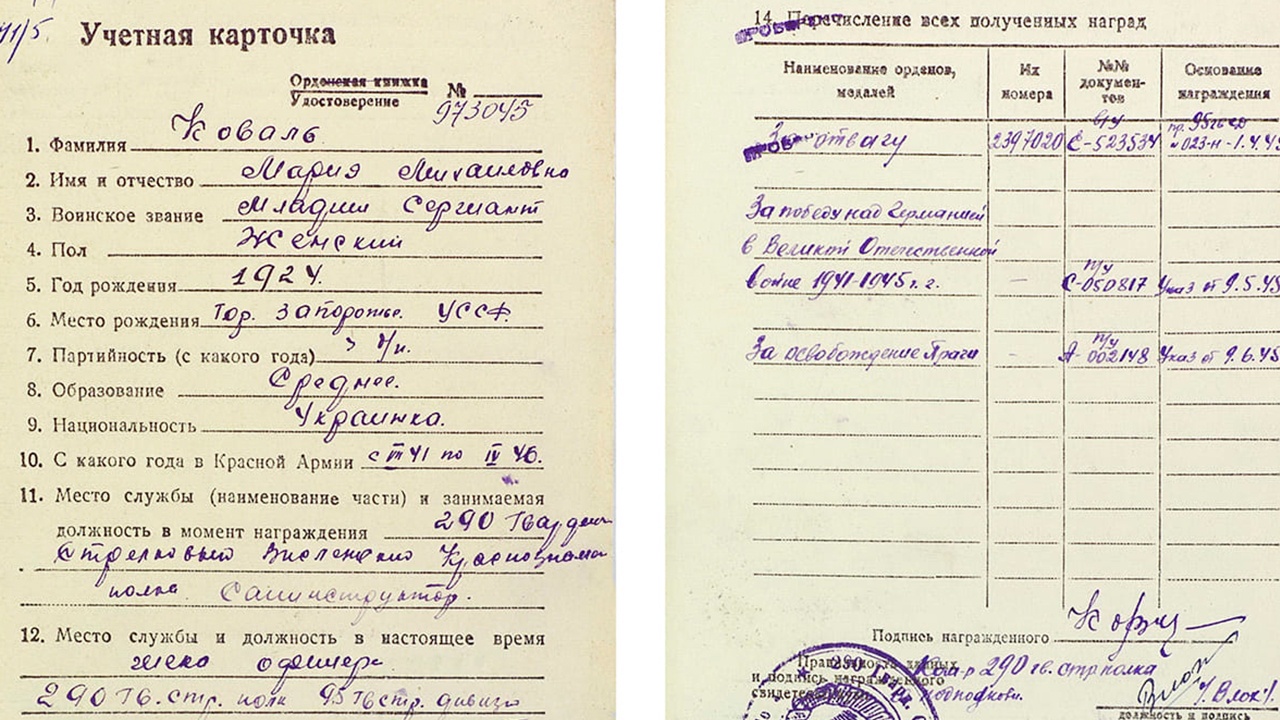 Учетная карточка
Орденская книжка
Удостоверение № 973045
1. Фамилия Коваль
2. Имя и отчество Мария Михаиловна
3. Воинское звание Младши Сергиант
4. Пол Женский
5. Год рождения 1924.
6. Место рождения Гор. Запорожье. УССР.
7. Партийность (с какого года) б/п.
8. Образование Среднее.
9. Национальность Украинка.
10. С какого года в Красной Армии с 41 по IV 46.
11. Место службы (наименование части) и занимаемая
должность в момент награждения 290 Гвардеи
Стрелковый Висленский Краснознаме
полка Санинструктор.
12. Место службы и должность в настоящее время
жена офицера
290 Гв. стр. полк 95 Гв стр. дивизи
14. Перечисление всех полученных наград
Наименование орденов, медалей
Их номера
№№ документов
Основание награждения
За отвагу 2397020 Е-523534 пр. 95 гв сд №023-н-1.4.45
За победу над Германией
в Великой Отечественной
войне 1941-1945 г. г. — п/у С-050817 Указ от 9.5.45
За освобождение Праги — п/у А-002148 Указ от 9.6.45
Подпись награжденного
Правильность данных
и подпись награжденного
свидетельствую
Ком-р 290 гв. стр полка
подполковн.
должность и подпись